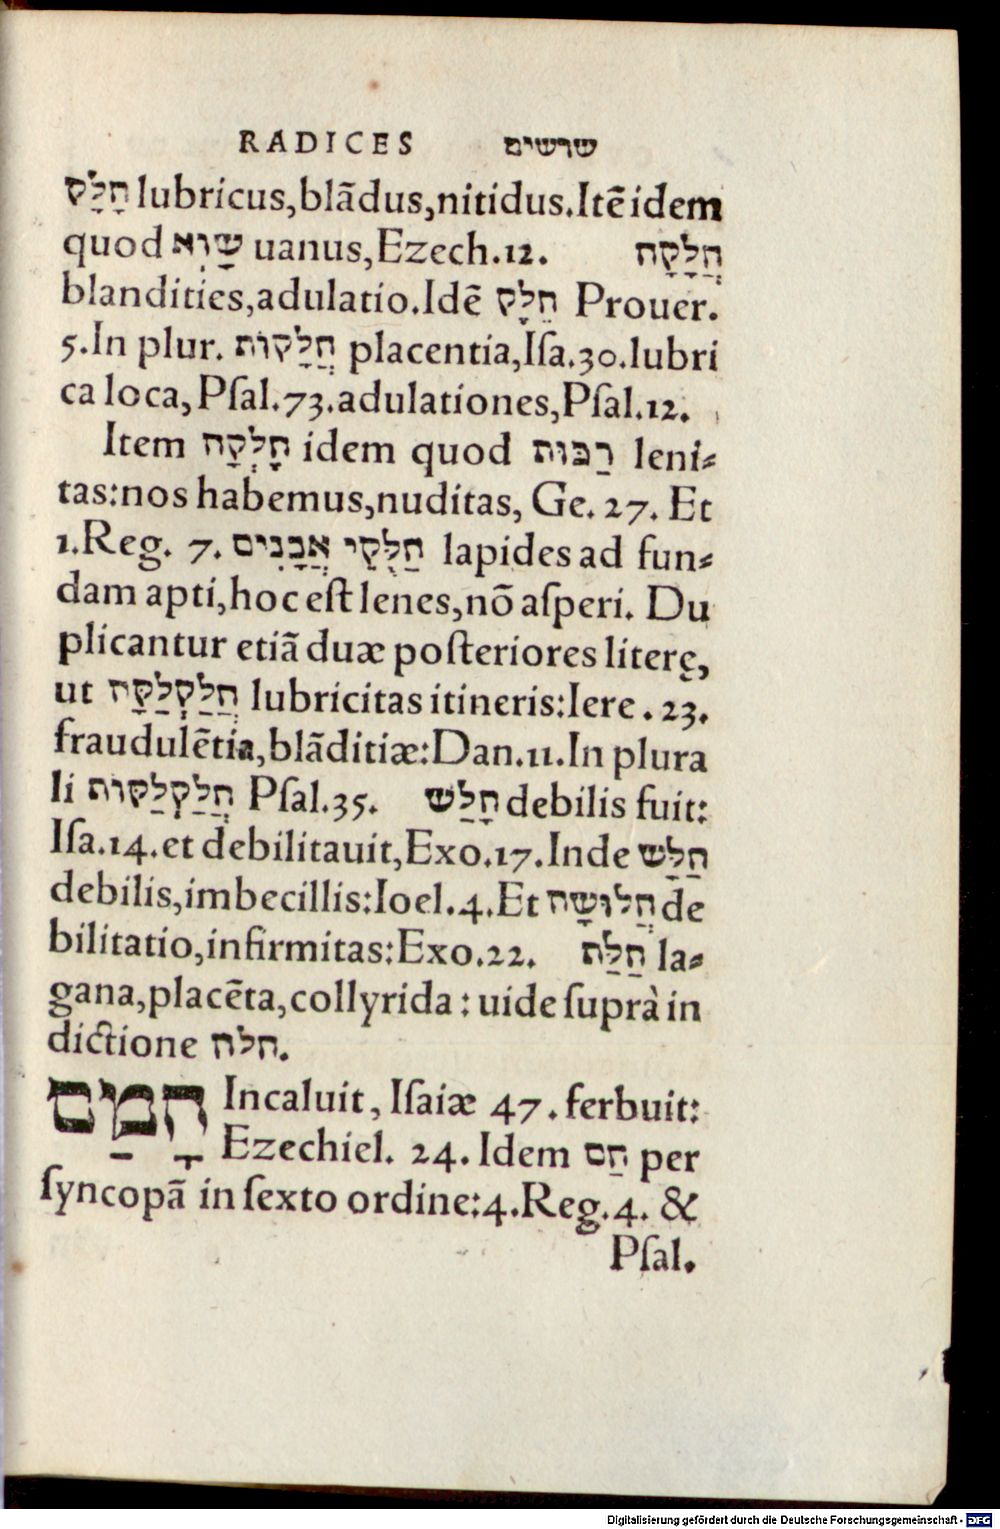 RADICES שרשים
חָלָק lubricus,blādus,nitidus.Itē idem
quod שָׁוְא uanus,Ezech.12. חֲלָקָה
blandities,adulatio.Idē חֵלָק Prouer.
5.In plur. חֲלָקוֹת placentia,Iſa.30.lubri
ca loca,Pſal.73.adulationes,Pſal.12.
Item חָלְקָה idem quod רַכּוּת leni⸗
tas:nos habemus,nuditas, Ge. 27. Et
1.Reg. 7. חַלֻּקֵי אֲבָנִים lapides ad fun⸗
dam apti,hoc eſt lenes,nō aſperi. Du
plicantur etiā duæ poſteriores literę,
ut חֲלַקְלַקָּה lubricitas itineris:Iere . 23.
fraudulētia,blāditiæ:Dan.11.In plura
li חֲלַקְלַקּוֹת Pſal.35. חָלַשׁ debilis fuit:
Iſa.14.et debilitauit,Exo.17.Inde חַלָּשׁ
debilis,imbecillis:Ioel.4.Et חֲלוּשָׁה de
bilitatio,infirmitas:Exo.22. חַלַּת la⸗
gana,placēta,collyrida : uide ſuprà in
dictione חלה.
חָמַם Incaluit, Iſaiæ 47 . ferbuit:
Ezechiel. 24. Idem חַם per
ſyncopā in ſexto ordine:4.Reg.4. &
Pſal.
Digitalisierung gefördert durch die Deutsche Forschungsgemeinschaft - DFG